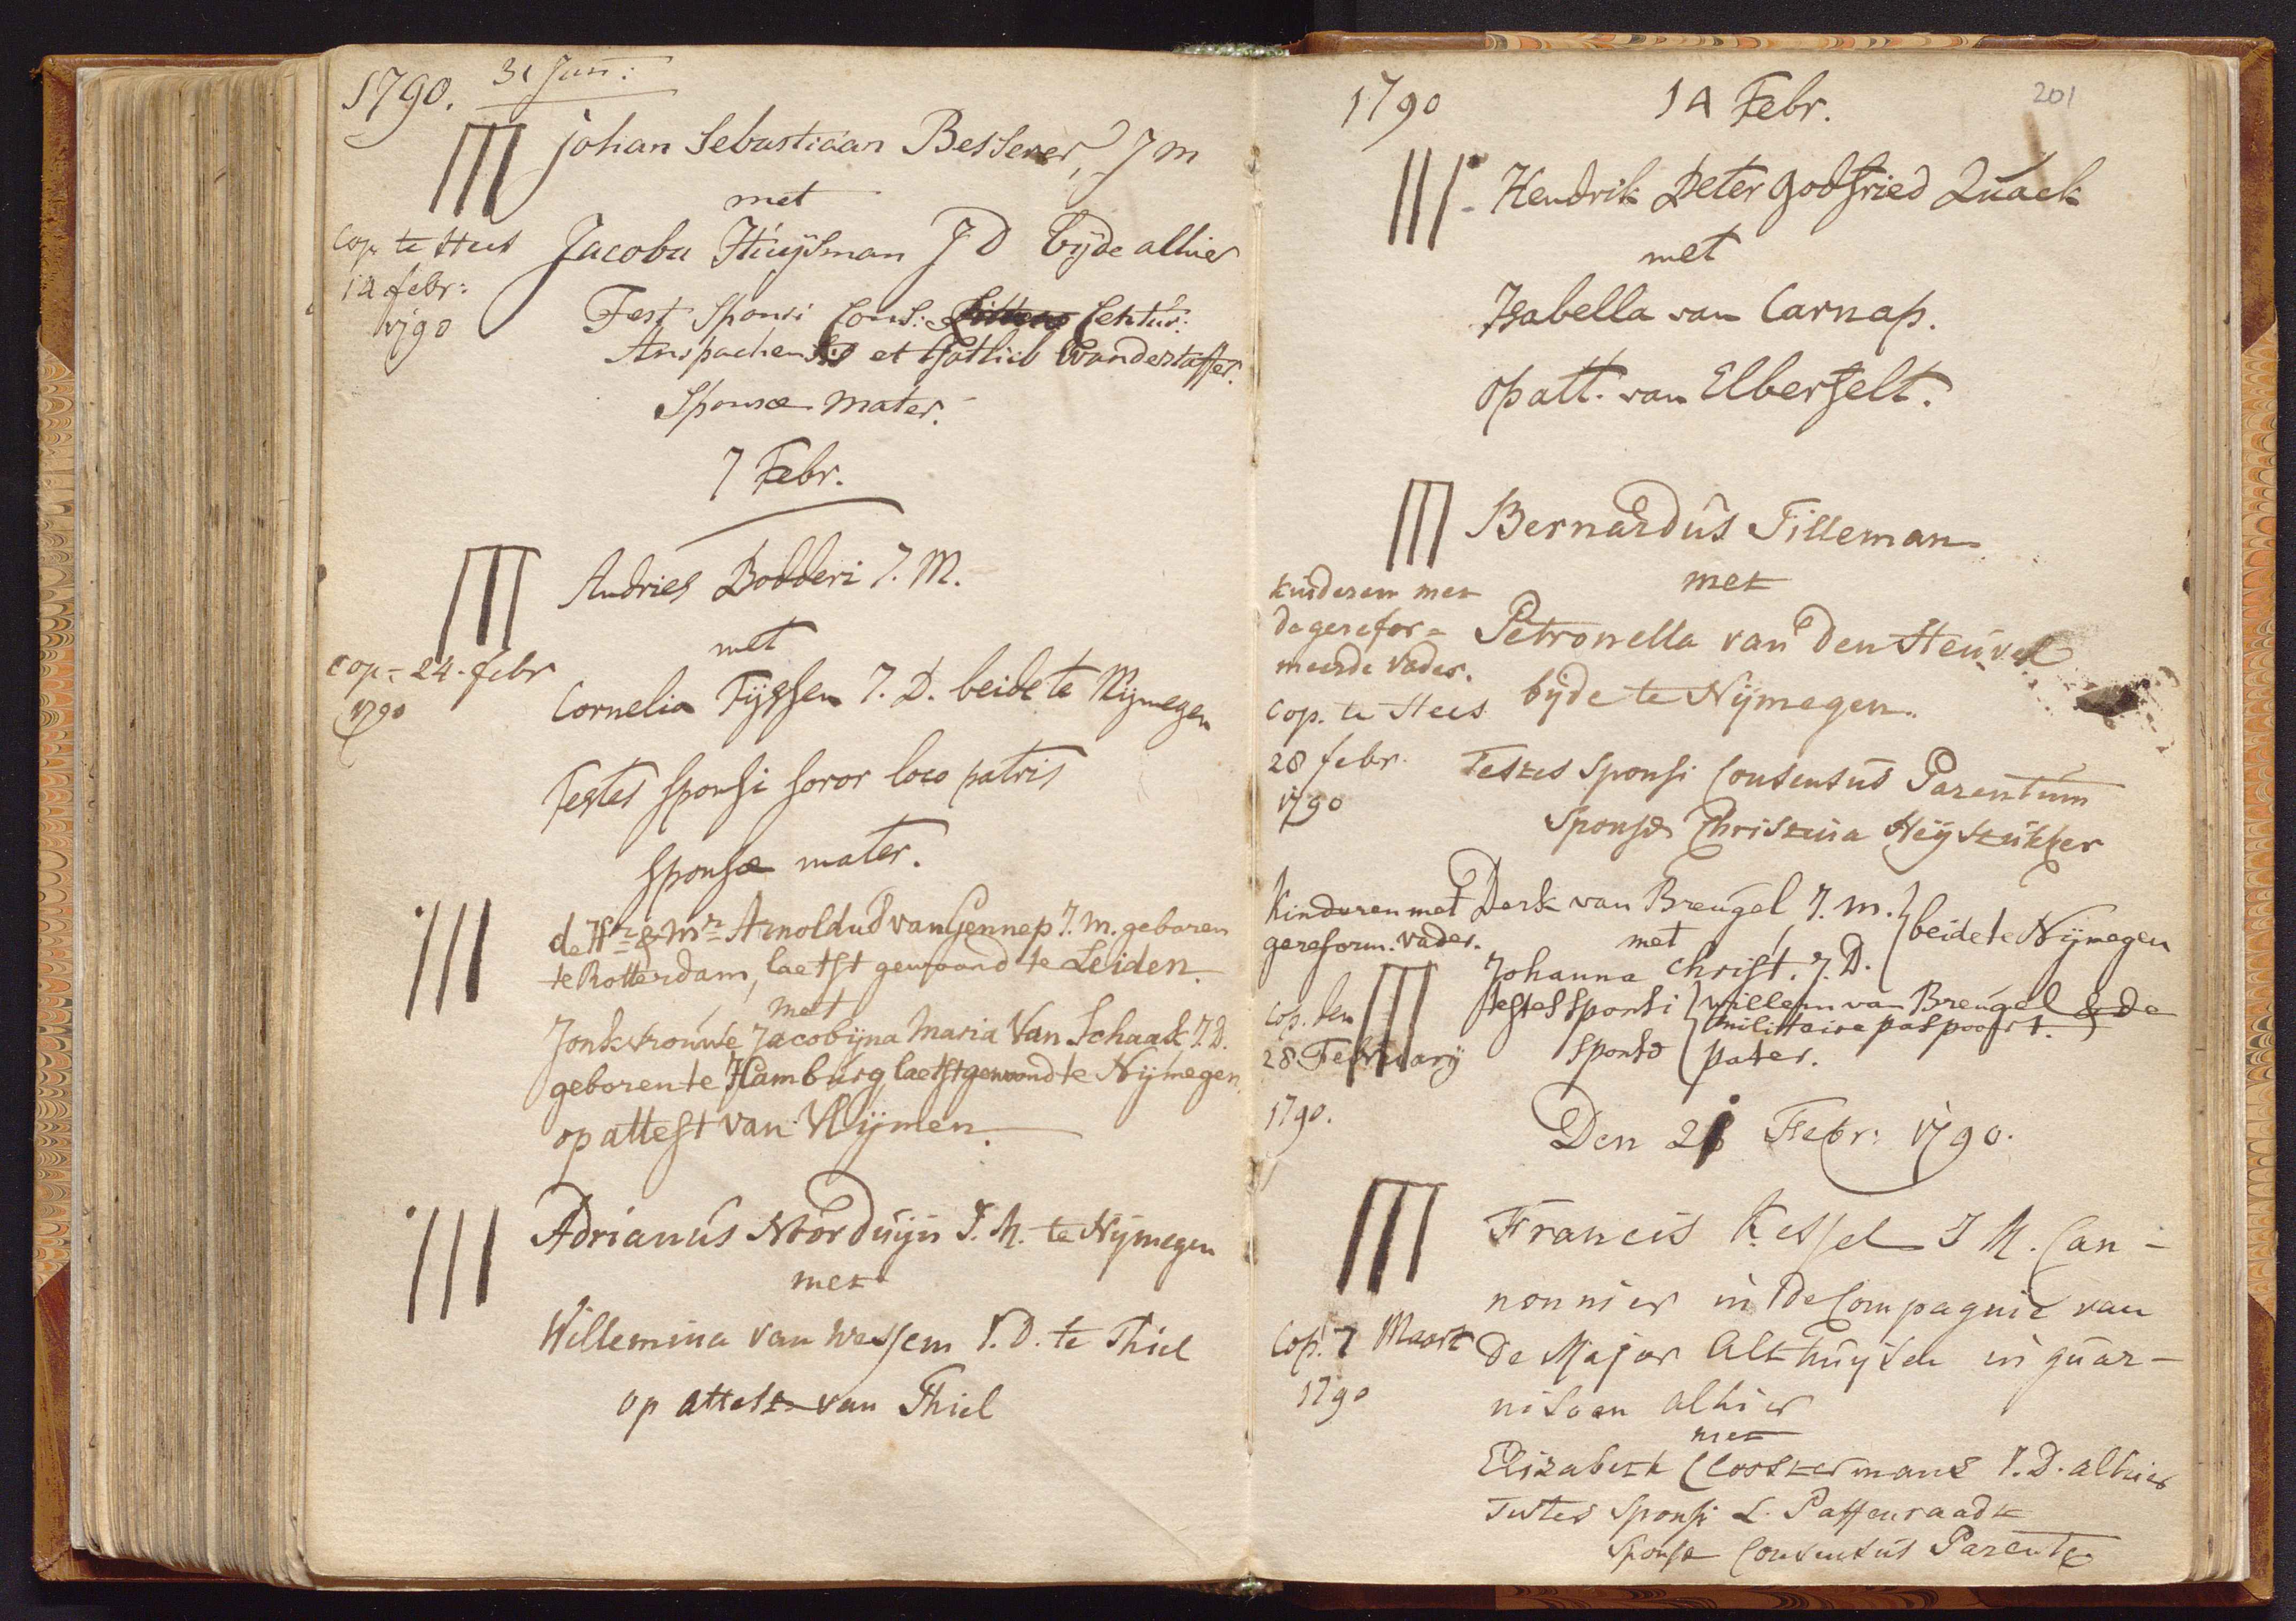 1790. 31 Jan:
Johan Sebastiaan Besserer, J m
met
Jacoba Huijsman J D bijde alhier
Cop. te Hees
14 febr:
1790
Test Sponsi Cons: Centur:
Anspachensis et Gotlieb Wanderstaffer.
Sponsæ Mater.
7 Febr.
Andries Bodderi J. M.
met
Cornelia Tijssen J. D. beide te Nijmegen
cop. 24. febr
1790
Testes sponsi soror loco patris
sponsæ mater.
de Hr. & Mr. Arnoldus van Gennep J. m. geboren
te Rotterdam, laetst gewoond te Leiden
met
Jonkvrouwe Jacobijna Maria Van Schaak J. D.
geboren te Hamburg laetst gewoond te Nijmegen
op attest van Nijmen.
Adrianus Noorduijn J. M. te Nijmegen
met
Willemina van Wessem J. D. te Thiel
op attest van Thiel
201
1790 14 Febr.
Hendrik Peter Godfried Quack
met
Isabella van Carnap.
op att. van Elberfelt.
Bernardus Tilleman
met
Petronella van den Heuvel
bijde te Nijmegen.
kinderen met
de gerefor=
meerde vader.
Cop. te Hees
28 febr.
1790
Testes Sponsi Consensus Parentum
Sponsæ Christina Heystukker
Kinderen met
gereform. vader.
Derk van Breugel J. m.
met
Johanna Christ. J. D.
beide te Nijmegen
testes sponsi willem van Breugel & de
militaire paspoort.
sponsæ pater.
Cop. den
28 February
1790.
Den 21 Febr: 1790.
Francis Kessel J M. Can-
nonnier in de Compagnie van
de Major Althuysen in guar-
nisoen alhier
met
Elizabeth Cloostermans J. D. alhier
Cop. 7 Maart
1790
Testes Sponsi L. Paffenraadt
Sponsæ Consensus Parent.